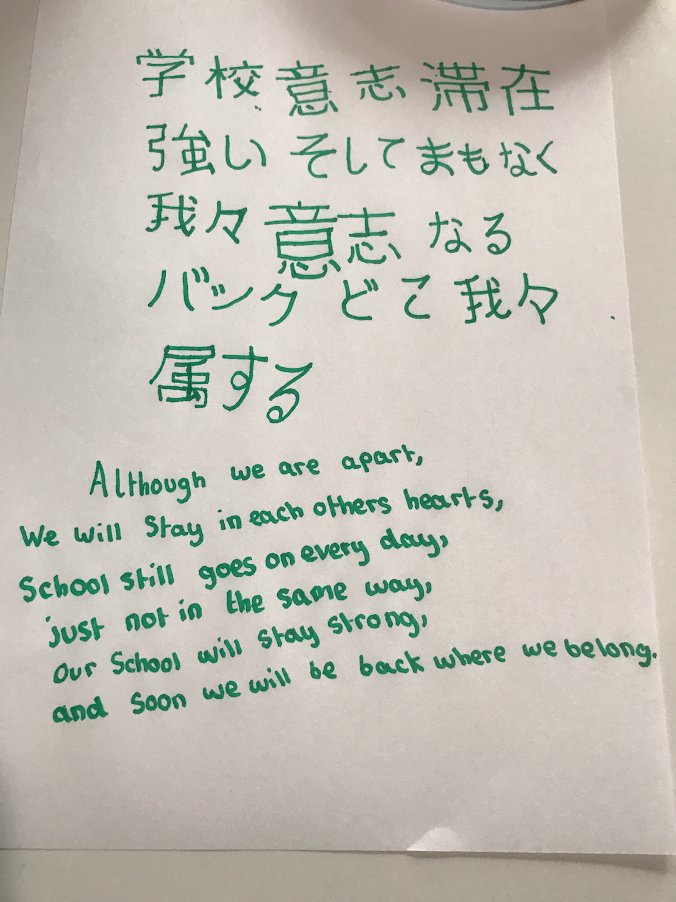 学校 意志 滞在
強い そして まもなく
我々 意志 なる
バック どこ 我々
属する
Although we are apart,
We will Stay in each others hearts,
School still goes on every day,
just not in the same way,
Our School will stay strong,
and soon we will be back where we belong.